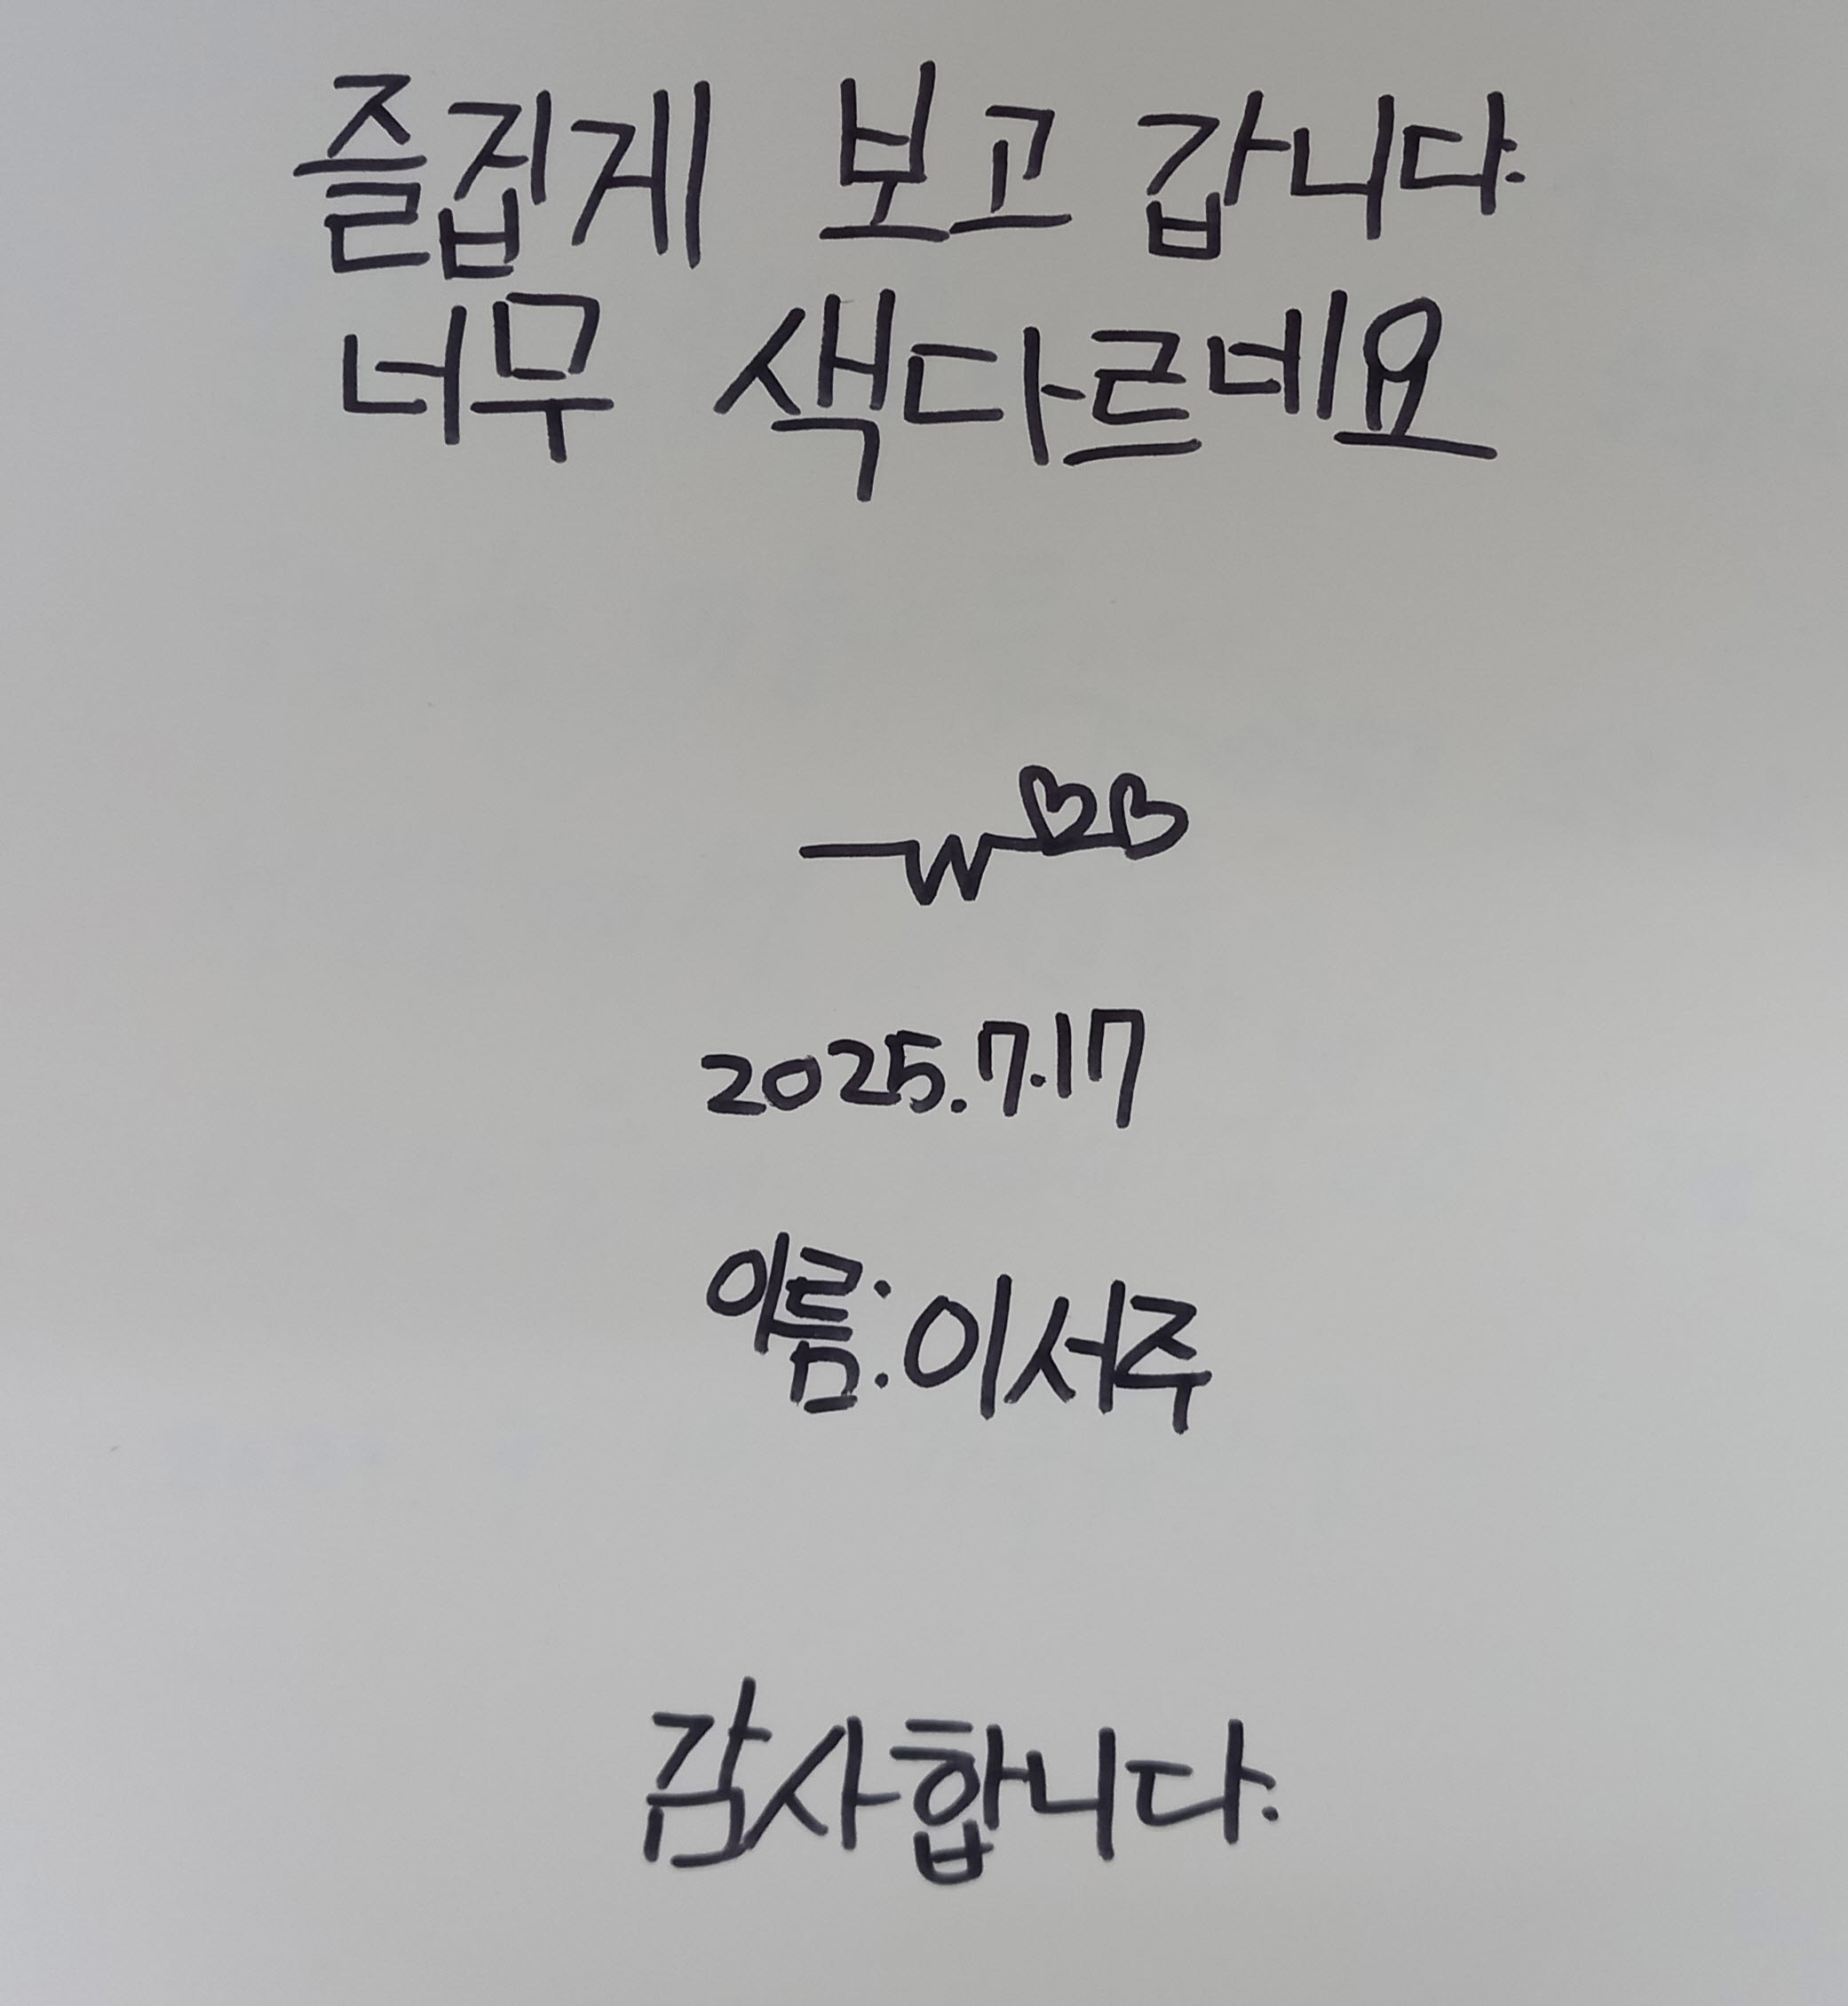 즐겁게 보고 갑니다.
너무 색다르네요
2025.7.17
이름:이서주
감사합니다.